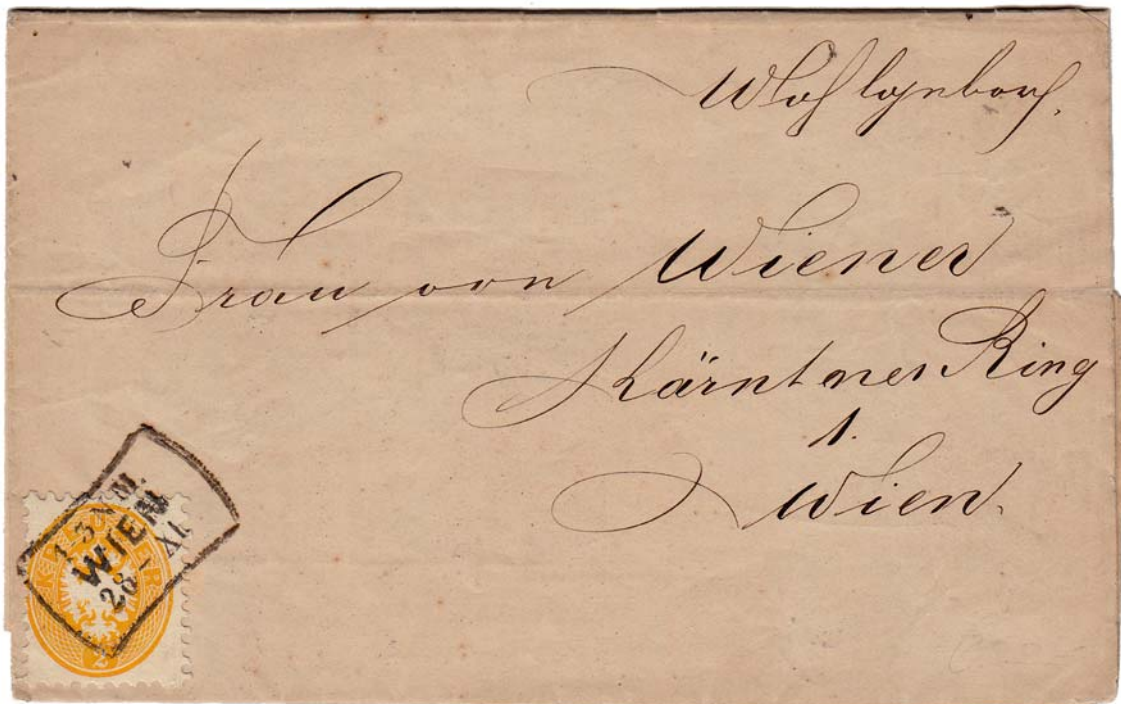 Wohlgeborn.
Frau von Wiener
Kärntner Ring
1.
Wien.
1-3 N.
WIEN
28 XI.
2